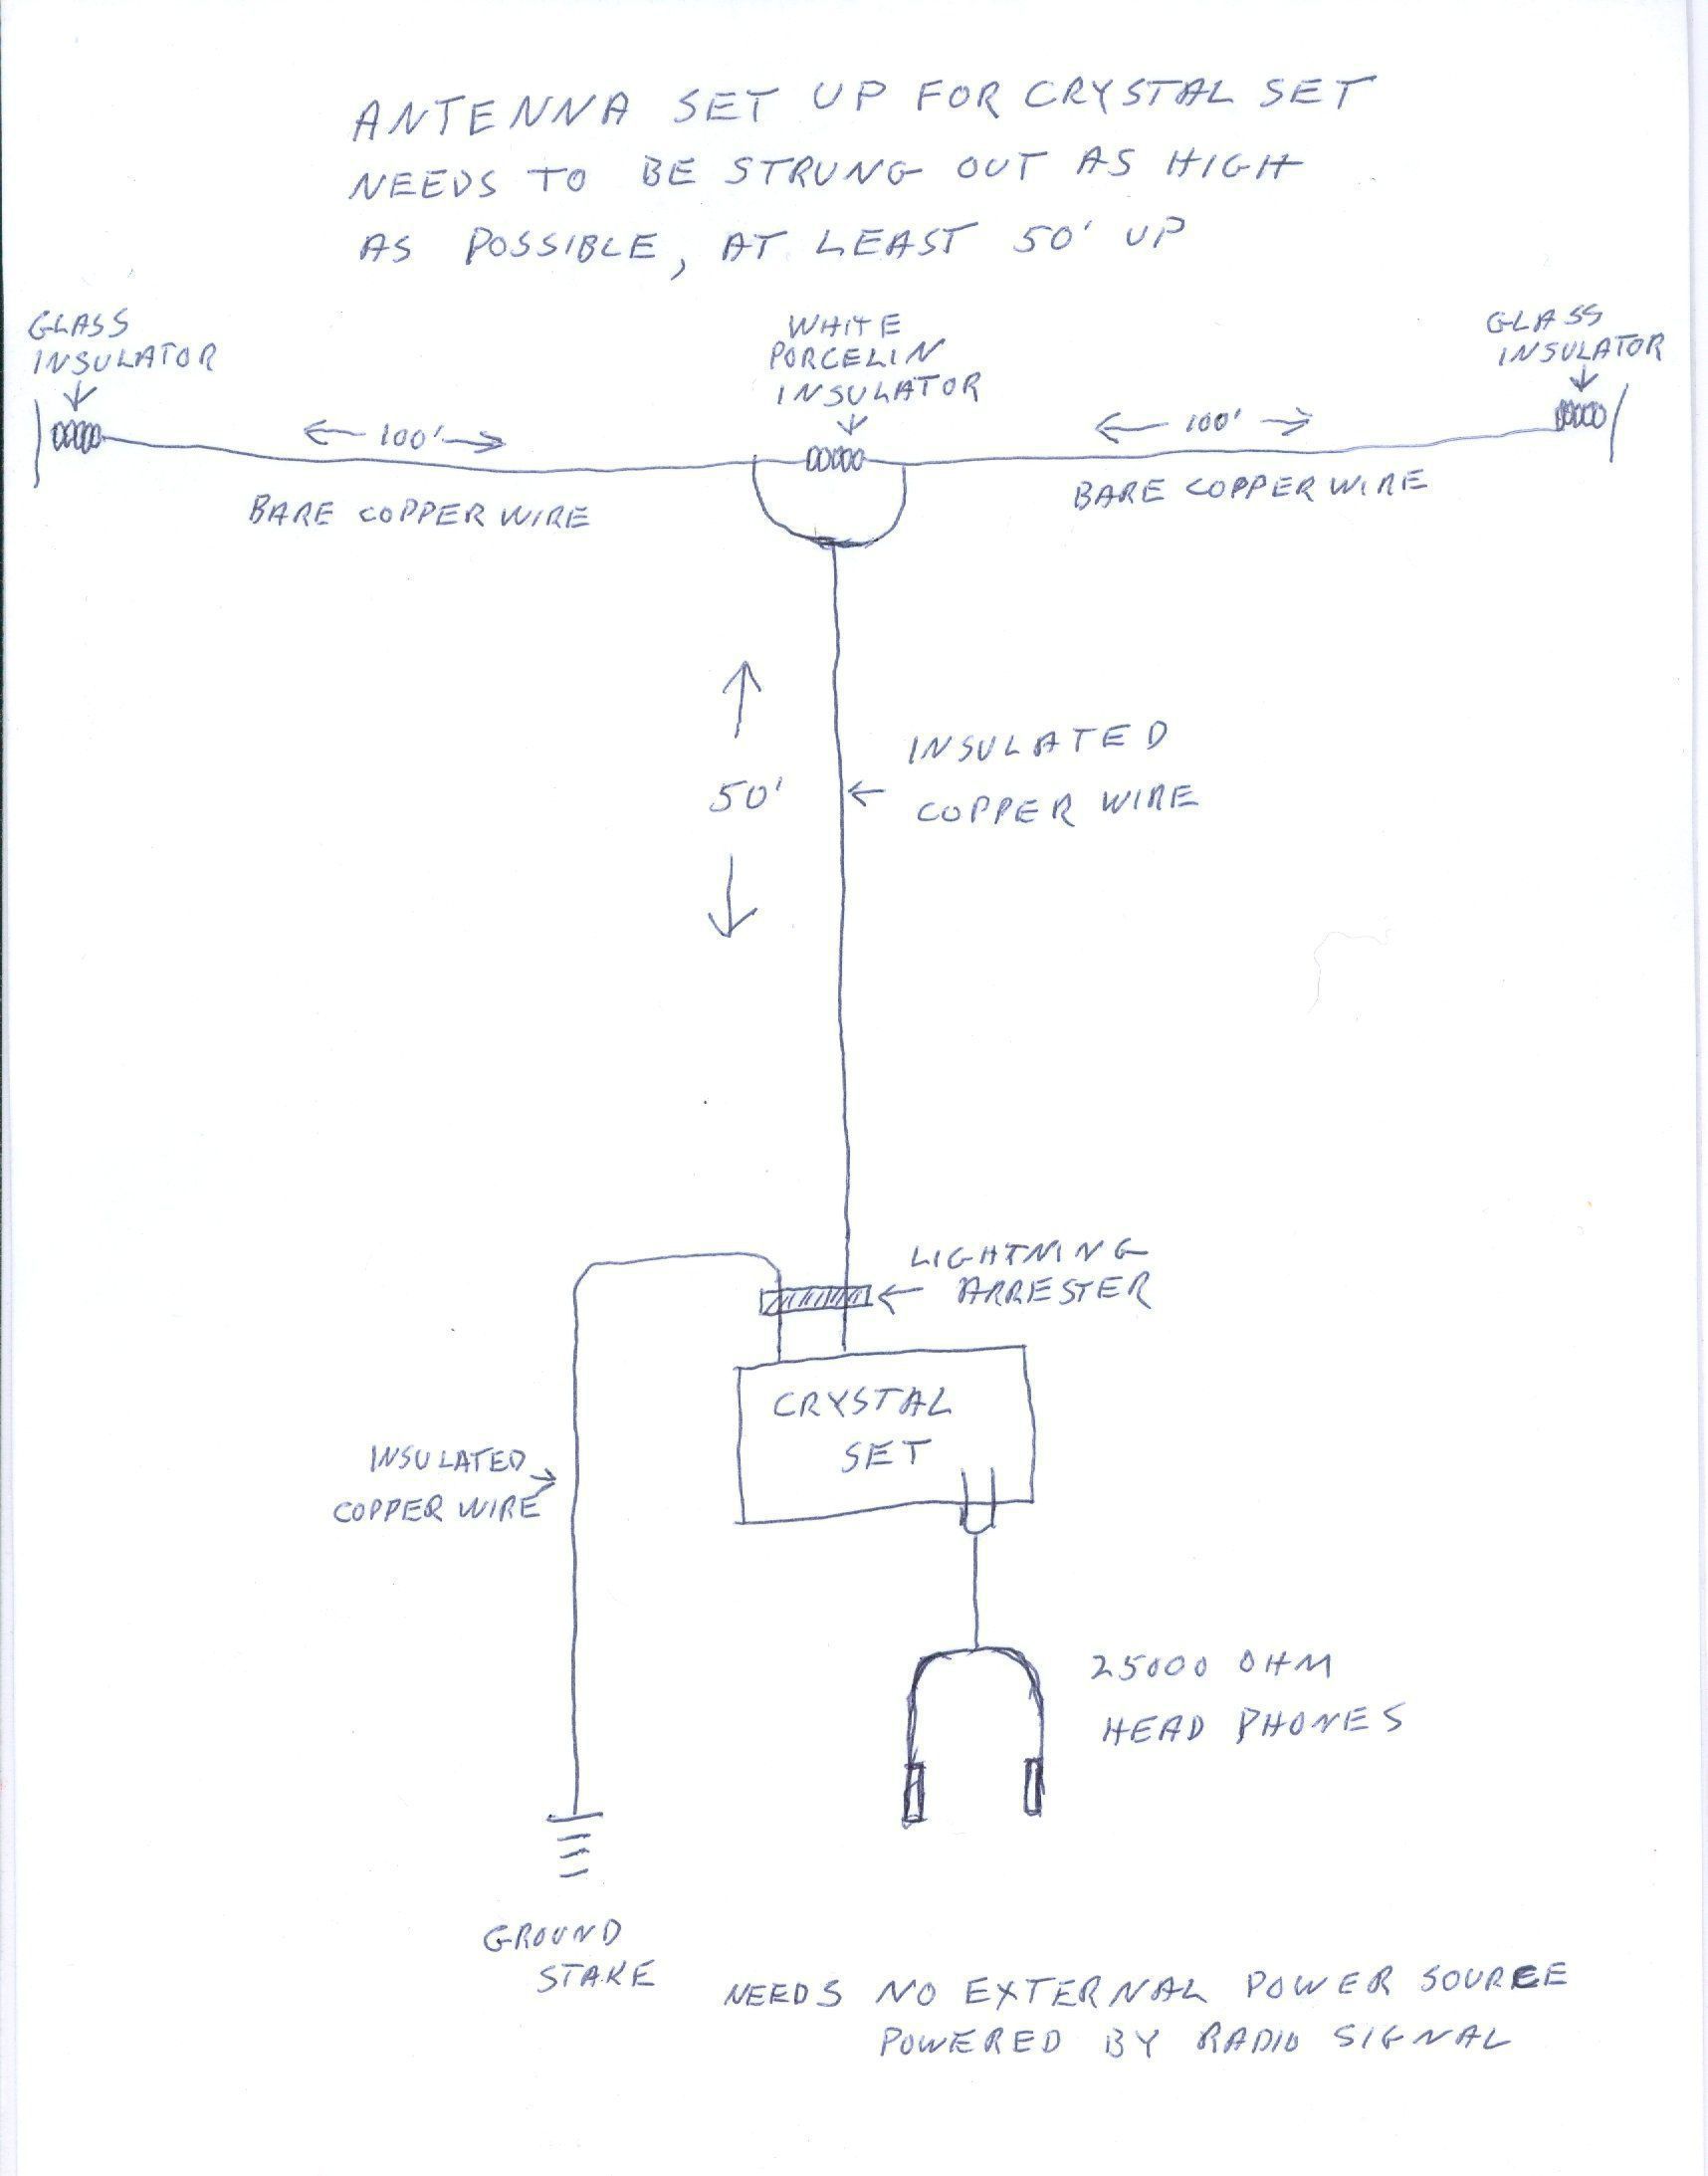 ANTENNA SET UP FOR CRYSTAL SET
NEEDS TO BE STRUNG OUT AS HIGH
AS POSSIBLE, AT LEAST 50' UP
GLASS
INSULATOR
WHITE
PORCELIN
INSULATOR
GLASS
INSULATOR
100'
100'
BARE COPPER WIRE
BARE COPPER WIRE
50'
INSULATED
COPPER WIRE
LIGHTNING
ARRESTER
CRYSTAL
SET
INSULATED
COPPER WIRE
25000 OHM
HEAD PHONES
GROUND
STAKE
NEEDS NO EXTERNAL POWER SOURCE
POWERED BY RADIO SIGNAL